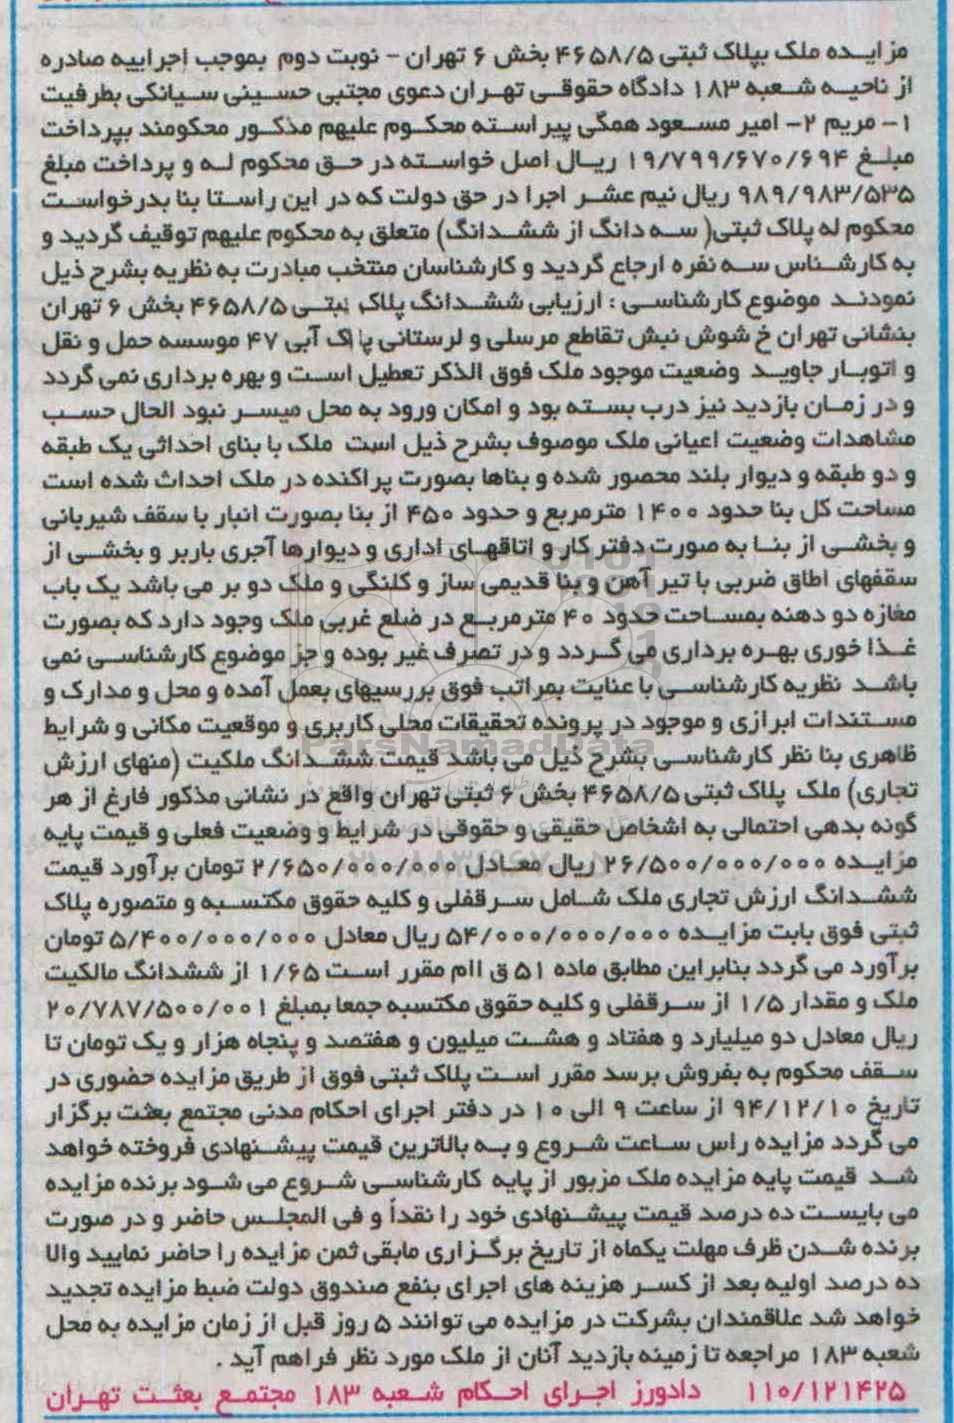 مزایده ملک بپلاک ثبتی ۴۶۵۸/۵ بخش ۶ تهران - نوبت دوم بموجب اجراییه صادره
از ناحیه شعبه ۱۸۳ دادگاه حقوقی تهران دعوی مجتبی حسینی سیانکی بطرفیت
۱- مریم ۲- امیر مسعود همگی پیراسته محکوم علیهم مذکور محکومند بپرداخت
مبلغ ۱۹/۷۹۹/۶۷۰/۶۹۴ ریال اصل خواسته در حق محکوم له و پرداخت مبلغ
۹۸۹/۹۸۳/۵۳۵ ریال نیم عشر اجرا در حق دولت که در این راستا بنا بدرخواست
محکوم له پلاک ثبتی( سه دانگ از ششدانگ) متعلق به محکوم علیهم توقیف گردید و
به کارشناس سه نفره ارجاع گردید و کارشناسان منتخب مبادرت به نظریه بشرح ذیل
نمودند موضوع کارشناسی : ارزیابی ششدانگ پلاک ثبتی ۴۶۵۸/۵ بخش ۶ تهران
بنشانی تهران خ شوش نبش تقاطع مرسلی و لرستانی پلاک آبی ۴۷ موسسه حمل و نقل
و اتوبار جاوید وضعیت موجود ملک فوق الذکر تعطیل است و بهره برداری نمی گردد
و در زمان بازدید نیز درب بسته بود و امکان ورود به محل میسر نبود الحال حسب
مشاهدات وضعیت اعیانی ملک موصوف بشرح ذیل است ملک با بنای احداثی یک طبقه
و دو طبقه و دیوار بلند محصور شده و بناها بصورت پراکنده در ملک احداث شده است
مساحت کل بنا حدود ۱۴۰۰ مترمربع و حدود ۴۵۰ از بنا بصورت انبار با سقف شیربانی
و بخشی از بنا به صورت دفتر کار و اتاقهای اداری و دیوارها آجری باربر و بخشی از
سقفهای اطاق ضربی با تیر آهن و بنا قدیمی ساز و کلنگی و ملک دو بر می باشد یک باب
مغازه دو دهنه بمساحت حدود ۴۰ مترمربع در ضلع غربی ملک وجود دارد که بصورت
غذا خوری بهره برداری می گردد و در تصرف غیر بوده و جز موضوع کارشناسی نمی
باشد نظریه کارشناسی با عنایت بمراتب فوق بررسیهای بعمل آمده و محل و مدارک و
مستندات ابرازی و موجود در پرونده تحقیقات محلی کاربری و موقعیت مکانی و شرایط
ظاهری بنا نظر کارشناسی بشرح ذیل می باشد قیمت ششدانگ ملکیت (منهای ارزش
تجاری) ملک پلاک ثبتی ۴۶۵۸/۵ بخش ۶ ثبتی تهران واقع در نشانی مذکور فارغ از هر
گونه بدهی احتمالی به اشخاص حقیقی و حقوقی در شرایط و وضعیت فعلی و قیمت پایه
مزایده ۲۶/۵۰۰/۰۰۰/۰۰۰ ریال معادل ۲/۶۵۰/۰۰۰/۰۰۰ تومان برآورد قیمت
ششدانگ ارزش تجاری ملک شامل سرقفلی و کلیه حقوق مکتسبه و متصوره پلاک
ثبتی فوق بابت مزایده ۵۴/۰۰۰/۰۰۰/۰۰۰ ریال معادل ۵/۴۰۰/۰۰۰/۰۰۰ تومان
برآورد می گردد بنابراین مطابق ماده ۵۱ ق اام مقرر است ۱/۶۵ از ششدانگ مالکیت
ملک و مقدار ۱/۵ از سرقفلی و کلیه حقوق مکتسبه جمعا بمبلغ ۲۰/۷۸۷/۵۰۰/۰۰۱
ریال معادل دو میلیارد و هفتاد و هشت میلیون و هفتصد و پنجاه هزار و یک تومان تا
سقف محکوم به بفروش برسد مقرر است پلاک ثبتی فوق از طریق مزایده حضوری در
تاریخ ۹۴/۱۲/۱۰ از ساعت ۹ الی ۱۰ در دفتر اجرای احکام مدنی مجتمع بعثت برگزار
می گردد مزایده راس ساعت شروع و به بالاترین قیمت پیشنهادی فروخته خواهد
شد قیمت پایه مزایده ملک مزبور از پایه کارشناسی شروع می شود برنده مزایده
می بایست ده درصد قیمت پیشنهادی خود را نقداً و فی المجلس حاضر و در صورت
برنده شدن ظرف مهلت یکماه از تاریخ برگزاری مابقی ثمن مزایده را حاضر نمایید والا
ده درصد اولیه بعد از کسر هزینه های اجرای بنفع صندوق دولت ضبط مزایده تجدید
خواهد شد علاقمندان بشرکت در مزایده می توانند ۵ روز قبل از زمان مزایده به محل
شعبه ۱۸۳ مراجعه تا زمینه بازدید آنان از ملک مورد نظر فراهم آید .
۱۱۰/۱۲۱۴۲۵ دادورز اجرای احکام شعبه ۱۸۳ مجتمع بعثت تهران
ParsNamadData